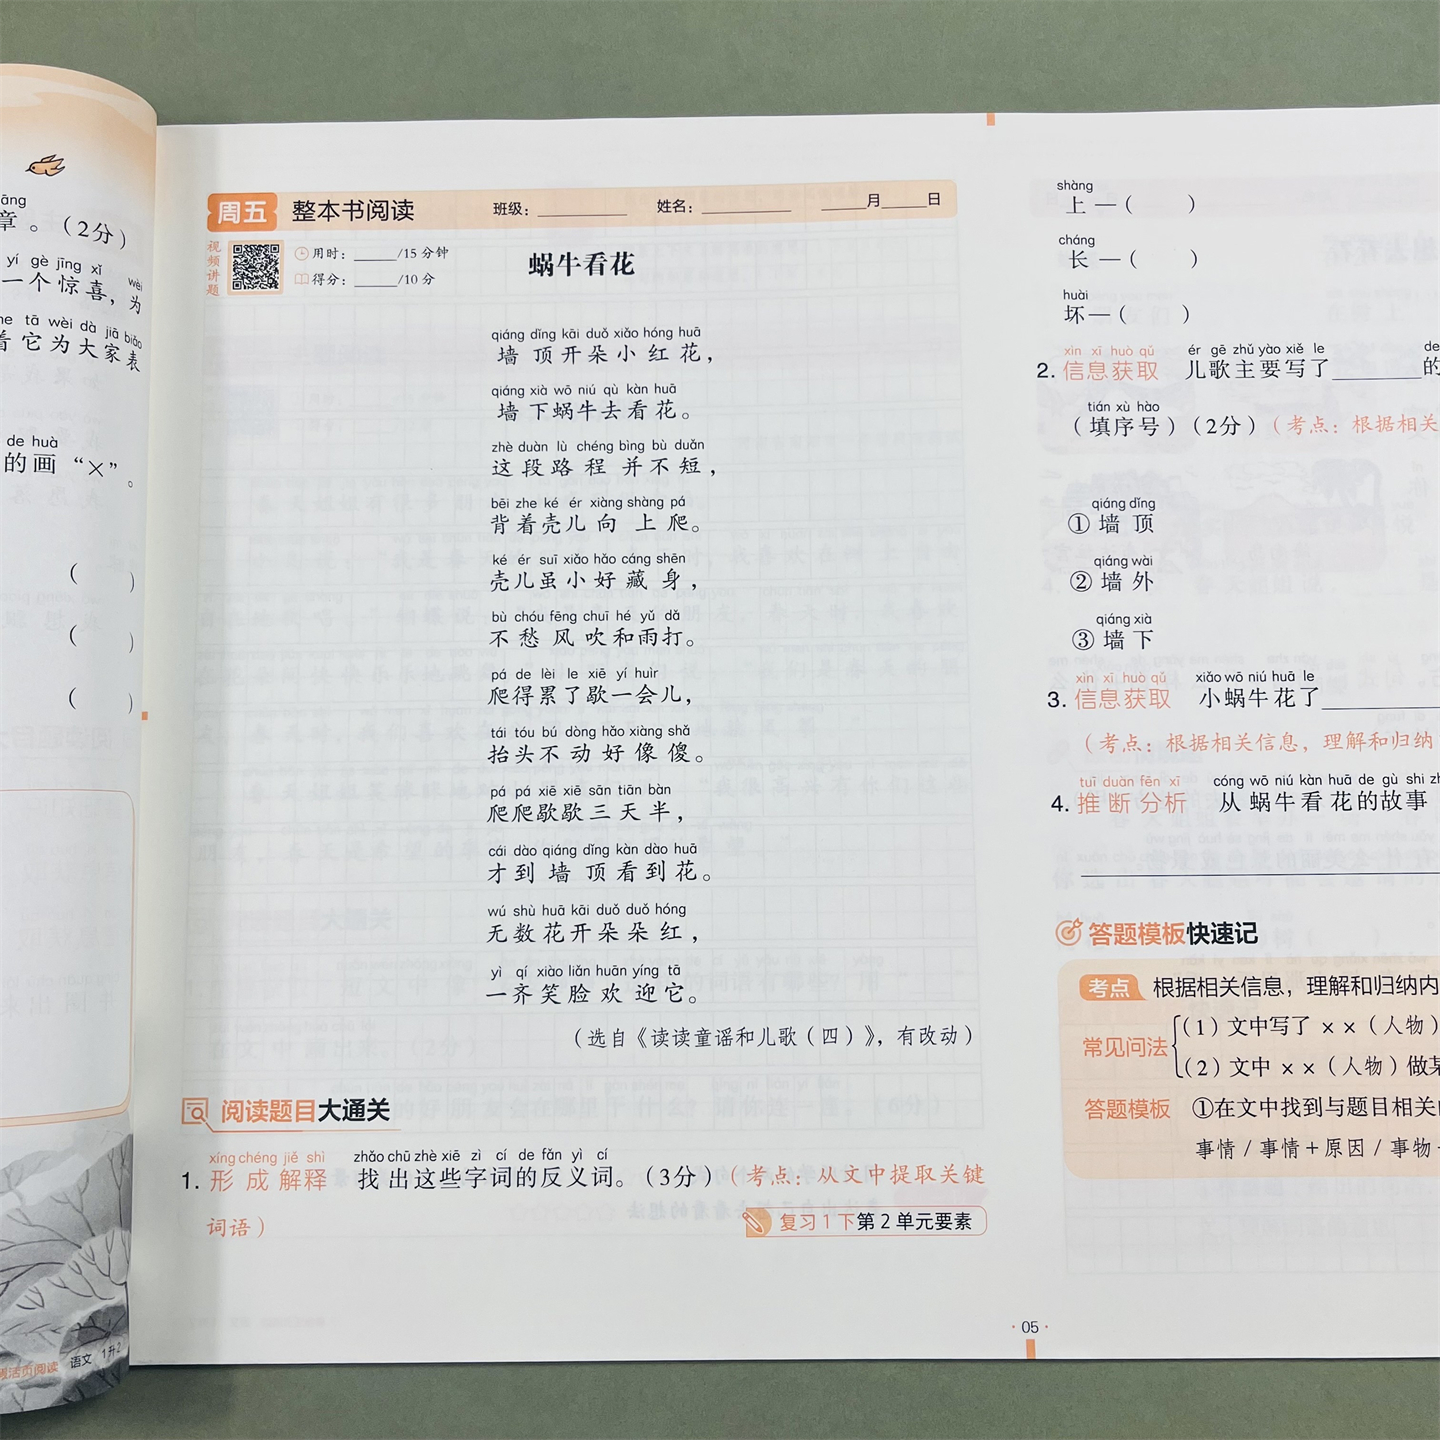 āng
章。（2分）
yí gè jīng xǐ wèi
一个惊喜，为
tā wèi dà jiā biǎo
着它为大家表
de huà
的画“×”。
(　　)
(　　)
(　　)
周活页阅读 语文 1升2
周五 整本书阅读 班级： 姓名： 月 日
视频讲题
用时： /15分钟
得分： /10分
蜗牛看花
qiáng dǐng kāi duǒ xiǎo hóng huā
墙顶开朵小红花，
qiáng xià wō niú qù kàn huā
墙下蜗牛去看花。
zhè duàn lù chéng bìng bù duǎn
这段路程并不短，
bēi zhe ké ér xiàng shàng pá
背着壳儿向上爬。
ké ér suī xiǎo hǎo cáng shēn
壳儿虽小好藏身，
bù chóu fēng chuī hé yǔ dǎ
不愁风吹和雨打。
pá de lèi le xiē yí huìr
爬得累了歇一会儿，
tái tóu bú dòng hǎo xiàng shǎ
抬头不动好像傻。
pá pá xiē xiē sān tiān bàn
爬爬歇歇三天半，
cái dào qiáng dǐng kàn dào huā
才到墙顶看到花。
wú shù huā kāi duǒ duǒ hóng
无数花开朵朵红，
yì qí xiào liǎn huān yíng tā
一齐笑脸欢迎它。
（选自《读读童谣和儿歌（四）》，有改动）
阅读题目大通关
xíng chéng jiě shì zhǎo chū zhè xiē zì cí de fǎn yì cí
1. 形成解释 找出这些字词的反义词。（3分）（考点：从文中提取关键
词语）
复习1下第2单元要素
shàng
上—(　　)
cháng
长—(　　)
huài
坏—(　　)
xìn xī huò qǔ ér gē zhǔ yào xiě le de
2. 信息获取 儿歌主要写了______的
tián xù hào
（填序号）（2分）（考点：根据相关
qiáng dǐng
① 墙顶
qiáng wài
② 墙外
qiáng xià
③ 墙下
xìn xī huò qǔ xiǎo wō niú huā le
3. 信息获取 小蜗牛花了______
（考点：根据相关信息，理解和归纳
tuī duàn fēn xī cóng wō niú kàn huā de gù shi
4. 推断分析 从蜗牛看花的故事
答题模板快速记
考点 根据相关信息，理解和归纳内
常见问法
（1）文中写了××（人物）
（2）文中××（人物）做某
答题模板 ①在文中找到与题目相关
事情/事情+原因/事物
·05·